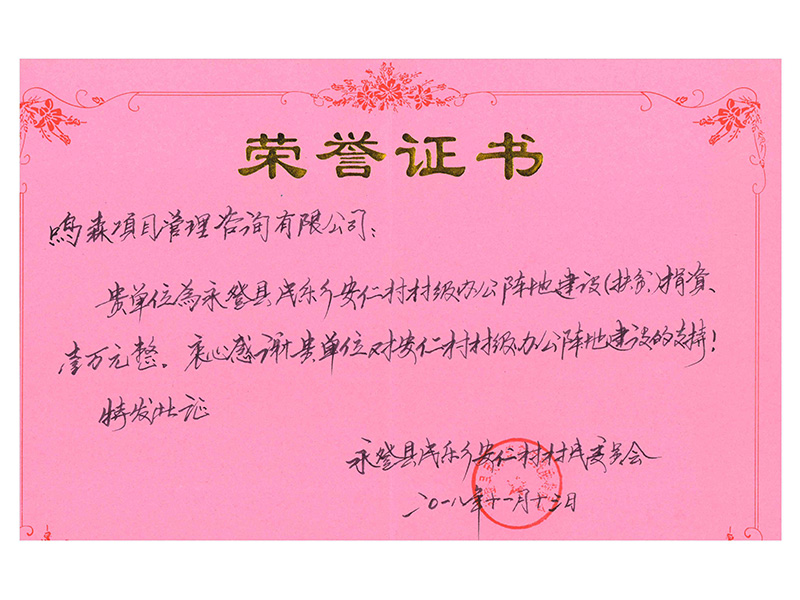 荣誉证书
鸣森项目管理咨询有限公司:
贵单位为永登县民乐乡安仁村村级办公阵地建设(扶贫)捐资、
壹万元整。衷心感谢贵单位对安仁村村级办公阵地建设的支持!
特发此证
永登县民乐乡安仁村村民委员会
二〇一八年十一月十三日